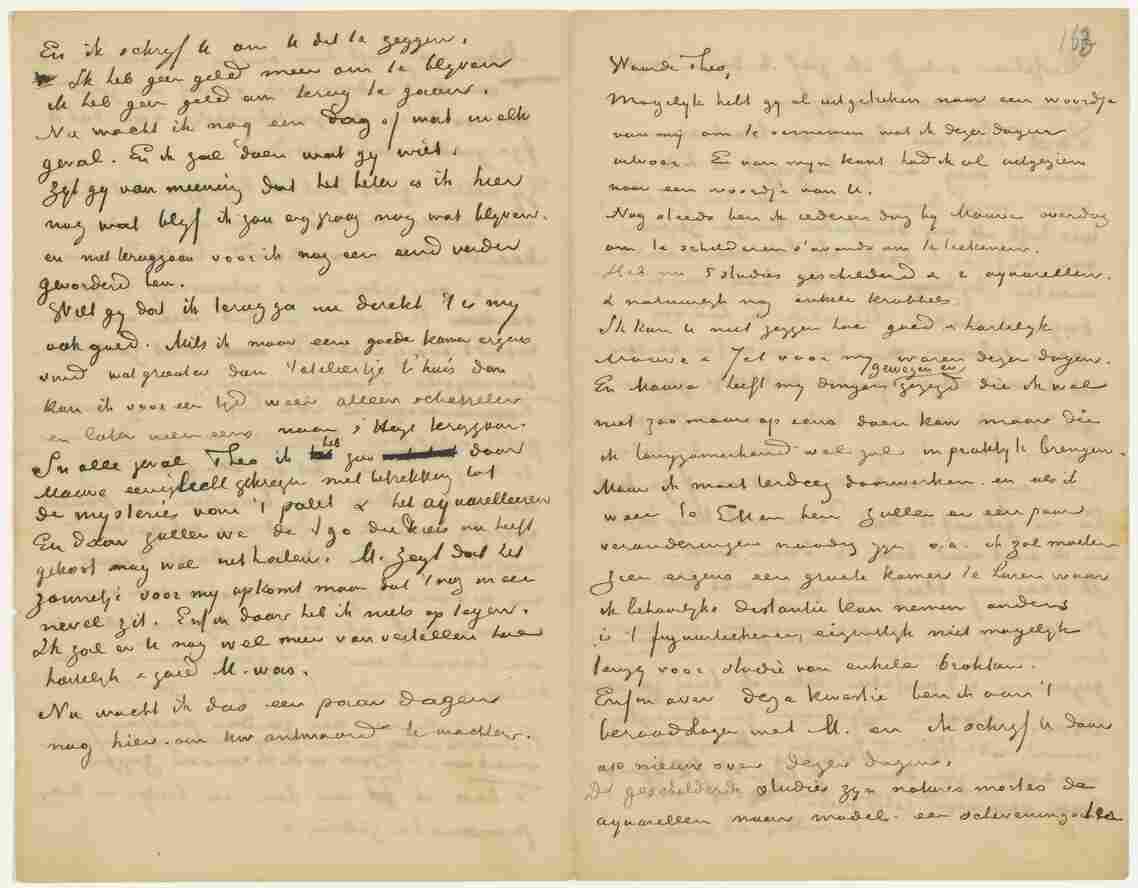 En ik schryf U om U dat te zeggen.
Ik heb geen geld meer om te blyven
ik heb geen geld om terug te gaan.
Nu wacht ik nog een dag of wat in elk
geval. En ik zal doen wat gy wilt.
Zyt gy van meening dat het beter is ik hier
nog wat blyf ik zou erg graag nog wat blyven.
en niet teruggaan voor ik nog een eind verder
gevorderd ben.
Wilt gy dat ik terug ga nu direkt 't is my
ook goed. Mits ik maar eene goede kamer ergens
vind wat grooter dan 't ateliertje t'huis dan
kan ik voor een tyd weer alleen scharrelen
en later weer eens naar s'Hage teruggaan.
In alle geval Theo ik heb zoo door
Mauve eenig licht gekregen met betrekking tot
de mysteries van 't palet & het aquarelleeren
En daar zullen we de f 90 die reis nu heeft
gekost nog wel uit halen. M. zegt dat het
zonnetje voor my opkomt maar dat 't nog in een
nevel zit. Enfin daar heb ik niets op tegen.
Ik zal er U nog wel meer van vertellen hoe
hartelyk & goed M. was.
Nu wacht ik dus een paar dagen
nog hier om uw antwoord te wachten.
163
Waarde Theo,
Mogelyk hebt gy al uitgekeken naar een woordje
van mij om te vernemen wat ik dezer dagen
uitvoer. En van myn kant had ik al uitgezien
naar een woordje van U.
Nog steeds ben ik iederen dag by Mauve overdag
om te schilderen s'avonds om te teekenen.
Heb nu 5 studies geschilderd & 2 aquarellen.
& natuurlyk nog enkele krabbels
Ik kan U niet zeggen hoe goed & hartelyk
Mauve & Jet voor my waren dezer dagen.
gewezen en
En Mauve heeft my dingen gezegd die ik wel
niet zoo maar op eens doen kan maar die
ik langzamerhand wel zal in praktyk brengen.
Maar ik moet terdeeg doorwerken. en als ik
weer te Etten ben zullen er een paar
veranderingen noodig zyn o.a. ik zal moeten
zien ergens een groote kamer te huren waar
ik behoorlyke distantie kan nemen anders
is 't figuurteekenen eigentlyk niet mogelyk
tenzy voor studie van enkele brokken.
Enfin over deze kwestie ben ik aan 't
beraadslagen met M. en ik schryf U daar
op nieuw over dezer dagen.
De geschilderde studies zyn natures mortes de
aquarellen naar model. een scheveningsch